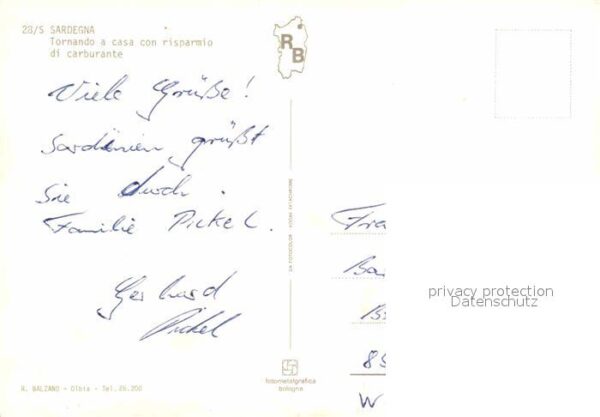 28/S SARDEGNA
Tornando a casa con risparmio
di carburante
RB
Viele Grüße!
Sardinien grüßt
Sie durch
Familie Pickel.
Gerhard
Pickel
Fra
Ba
privacy protection
Datenschutz
85
W
fotometalgrafica
bologna
R. BALZANO - Olbia - Tel. 26.200